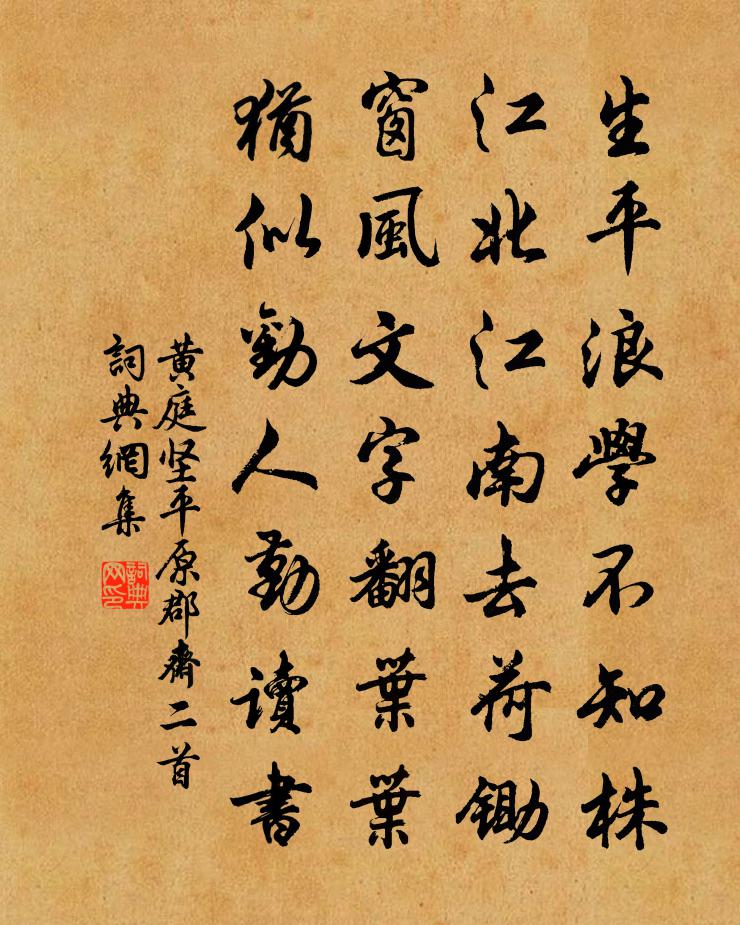 生平浪學不知株
江北江南去荷鋤
窗風文字翻葉葉
猶似勸人勤讀書
黄庭坚平原郡齋二首
詞典網集
詞典网印